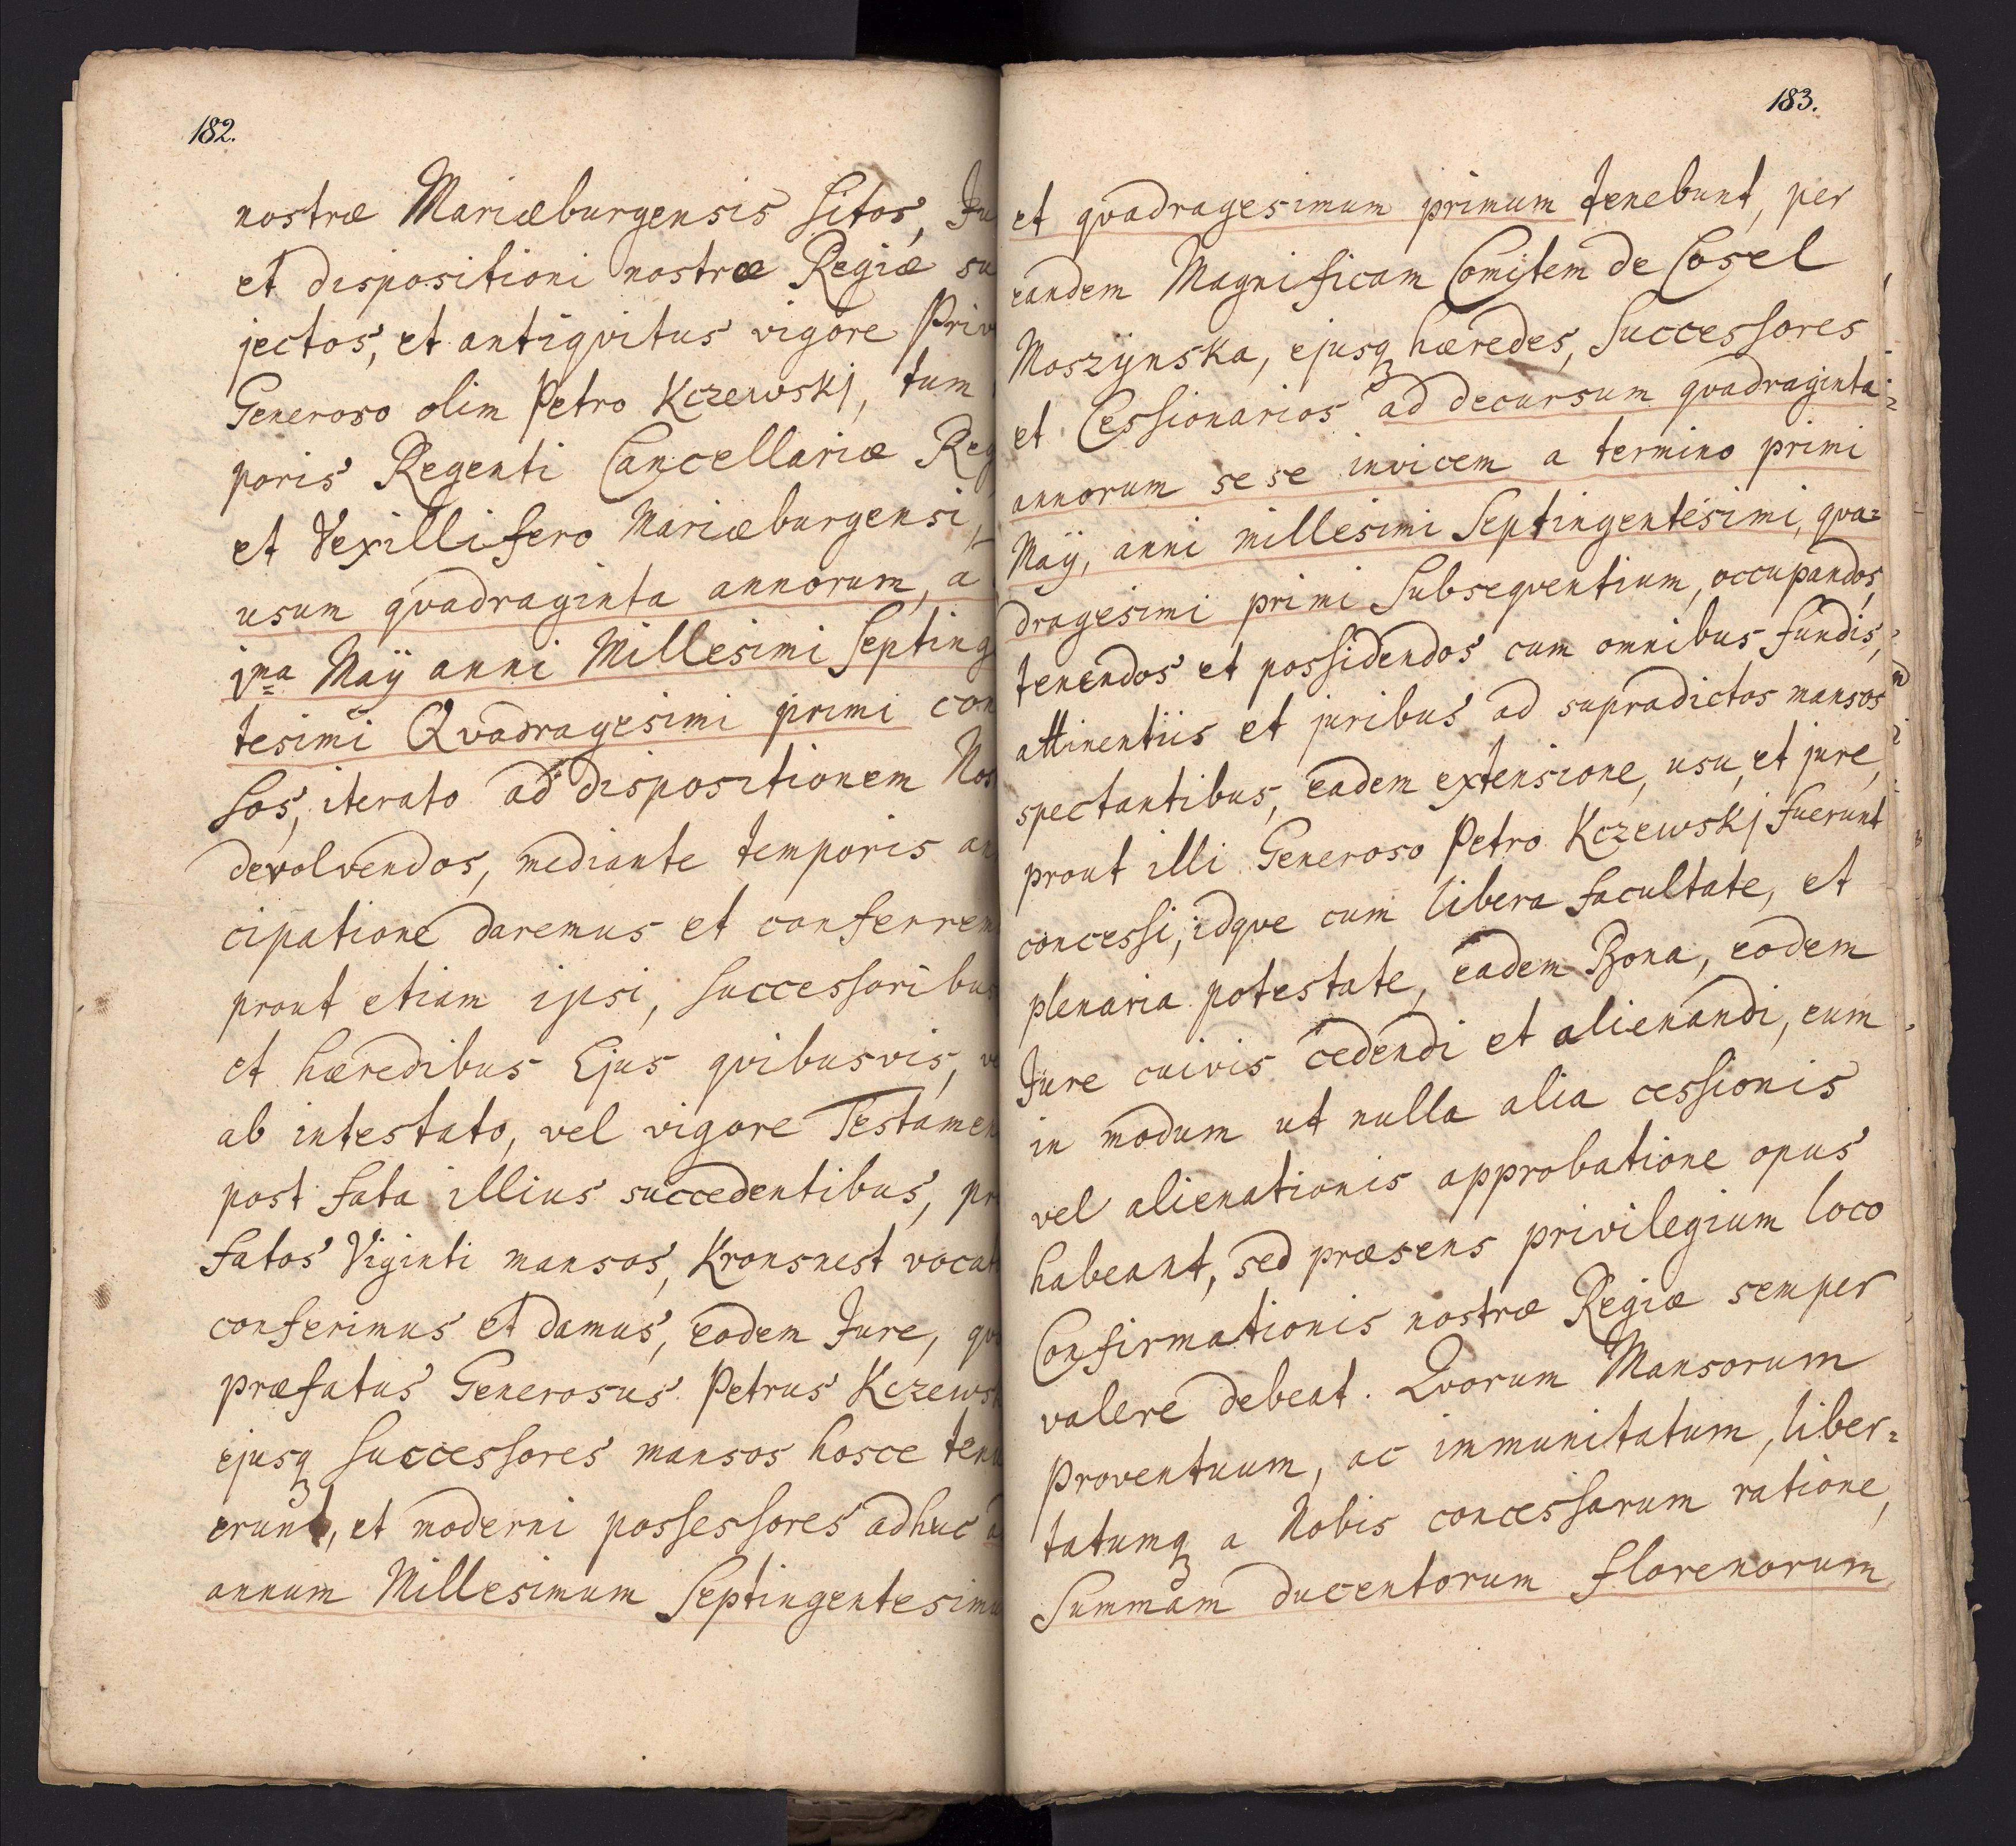 182.
nostræ Mariæburgensis sitos, Ju
et dispositioni nostræ Regiæ su
jectos, et antiqvitus vigore Priv
Generoso olim Petro Kczewskj, tum
poris Regenti Cancellariæ Reg
et Vexillifero Mariæburgensi,
usum qvadraginta annorum, a
1ma Maÿ anni Millesimi Septing
tesimi Qvadragesimi primi con
sos, iterato ad dispositionem Nos
devolvendos, mediante temporis an
cipatione daremus et conferrem
prout etiam ipsi, successoribus
et hæredibus Ejus qvibusvis, ve
ab intestato, vel vigore Testamen
post fata illius succedentibus, pr
fatos Viginti mansos, Kronsnest vocat
conferimus et damus, eodem Jure, qvo
præfatus Generosus Petrus Kczewsk
ejusq successores mansos hosce tenu
erunt, et moderni possessores adhuc a
annum Millesimum Septingentesimu
183.
et qvadragesimum primum tenebunt, per
eandem Magnificam Comitem de Cosel
Moszÿnska, ejusq hæredes, Successores
et Cessionarios ad decursum qvadraginta
annorum sese invicem a termino primi
Maÿ, anni millesimi Septingentesimi, qva=
dragesimi primi Subseqventium, occupandos,
tenendos et possidendos cum omnibus fundis,
attinentiis et juribus ad supradictos mansos
spectantibus, eadem extensione, usu, et jure,
prout illi Generoso Petro Kczewskj fuerunt
concessi, idqve cum libera facultate, et
plenaria potestate, eadem Bona, eodem
Jure cuivis cedendi et alienandi, eum
in modum ut nulla alia cessionis
vel alienationis approbatione opus
habeant, sed præsens privilegium loco
Confirmationis nostræ Regiæ semper
valere debeat. Qvorum Mansorum
Proventuum, ac immunitatum, liber=
tatumq a Nobis concessarum ratione,
Summam ducentorum florenorum